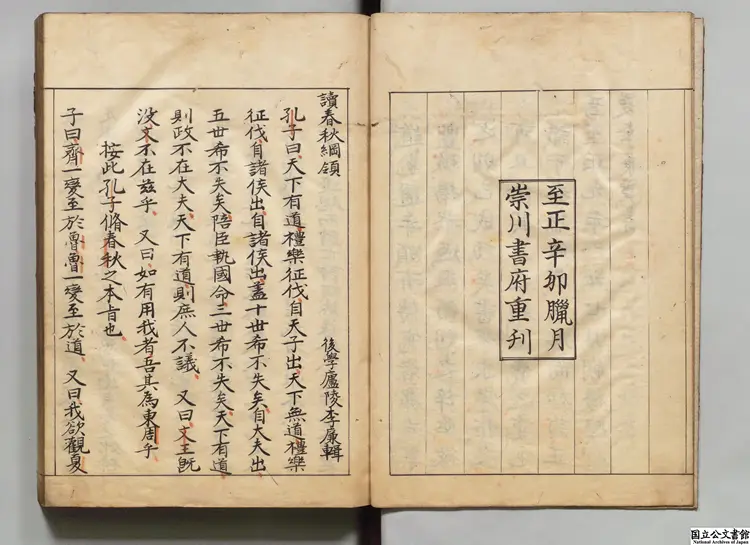 至正辛卯臘月
崇川書府重刋
讀春秋綱領
後學廬陵李廉輯
孔子曰天下有道禮樂征伐自天子出天下無道禮樂
征伐自諸侯出自諸侯出蓋十世希不失矣自大夫出
五世希不失矣陪臣執國命三世希不失矣天下有道
則政不在大夫天下有道則庶人不議 又曰文王旣
没文不在兹乎 又曰如有用我者吾其為東周乎
按此孔子脩春秋之本㫖也
子曰齊一變至於魯魯一變至於道 又曰我欲觀夏
国立公文書館
National Archives of Japan